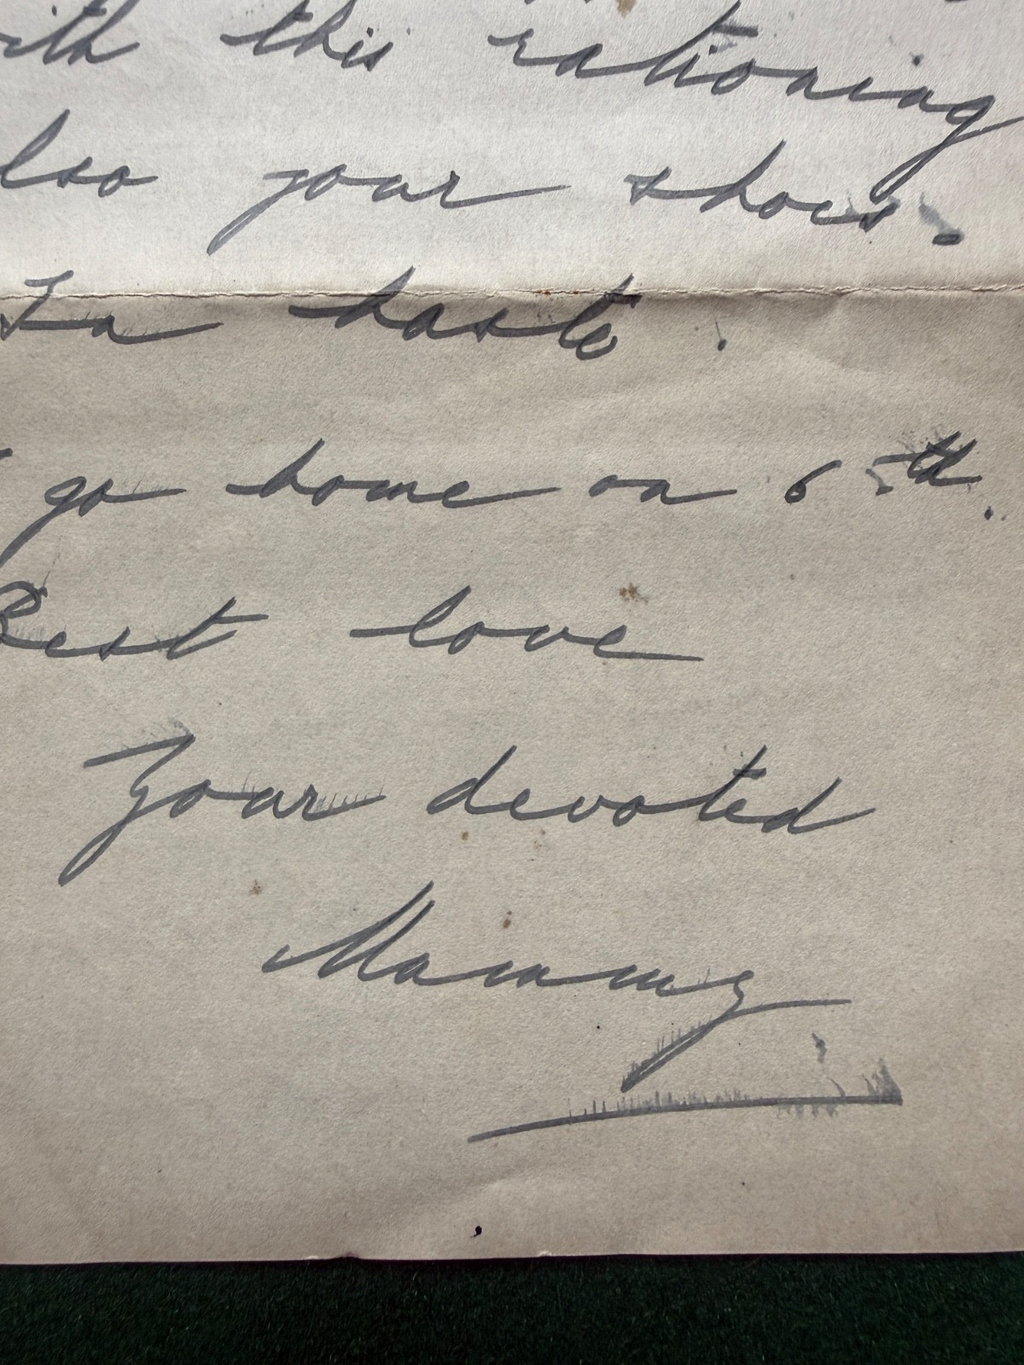 ith this rationing
lso your shoes.
In haste.
go home on 6th.
Best love
Your devoted
Mammy